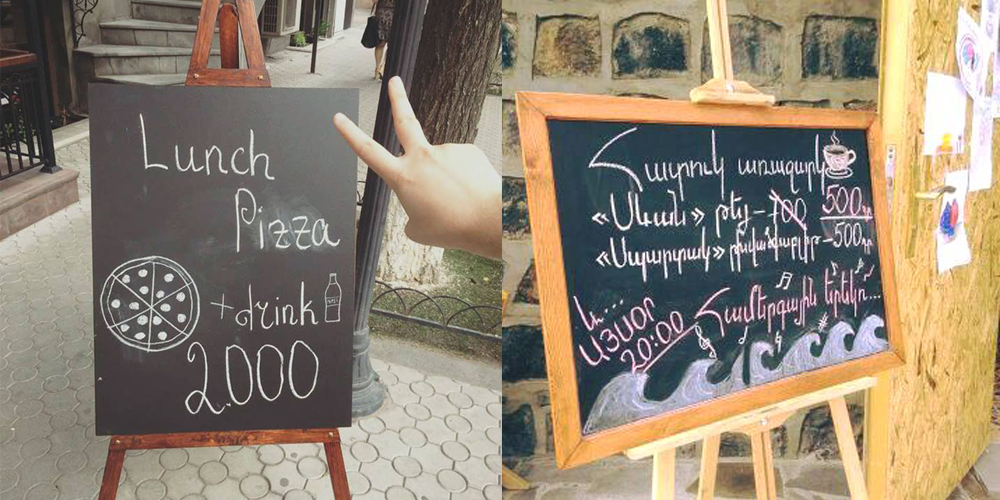 Lunch
Pizza
+ drink
2.000
Հատուկ առաջարկ
«Սևան» թեյ – 700 500 դր
«Սպարտակ» – 500 դր
և...
ԱՅՍՕՐ
20:00
Համերգային երեկո...